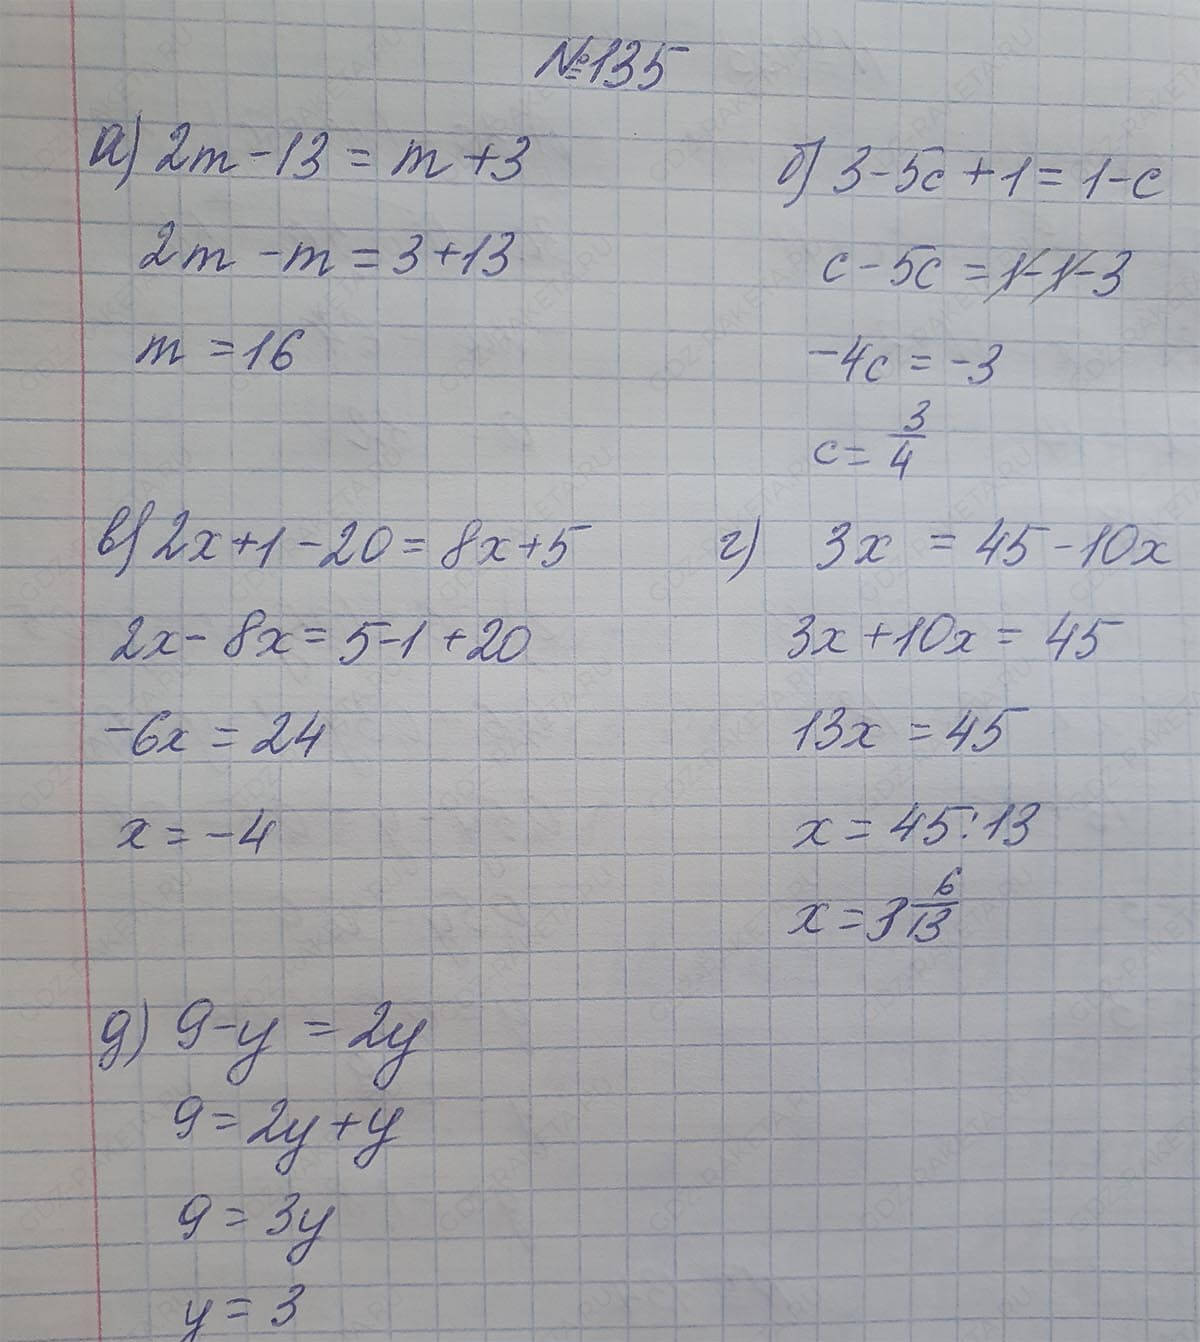 №135
а) 2m - 13 = m + 3
2m - m = 3 + 13
m = 16
б) 3 - 5c + 1 = 1 - c
c - 5c = 1 - 1 - 3
-4c = -3
c = 3/4
в) 2x + 1 - 20 = 8x + 5
2x - 8x = 5 - 1 + 20
-6x = 24
x = -4
г) 3x = 45 - 10x
3x + 10x = 45
13x = 45
x = 45 : 13
x = 3 6/13
д) 9 - y = 2y
9 = 2y + y
9 = 3y
y = 3
GDZ-RAKETA.RU